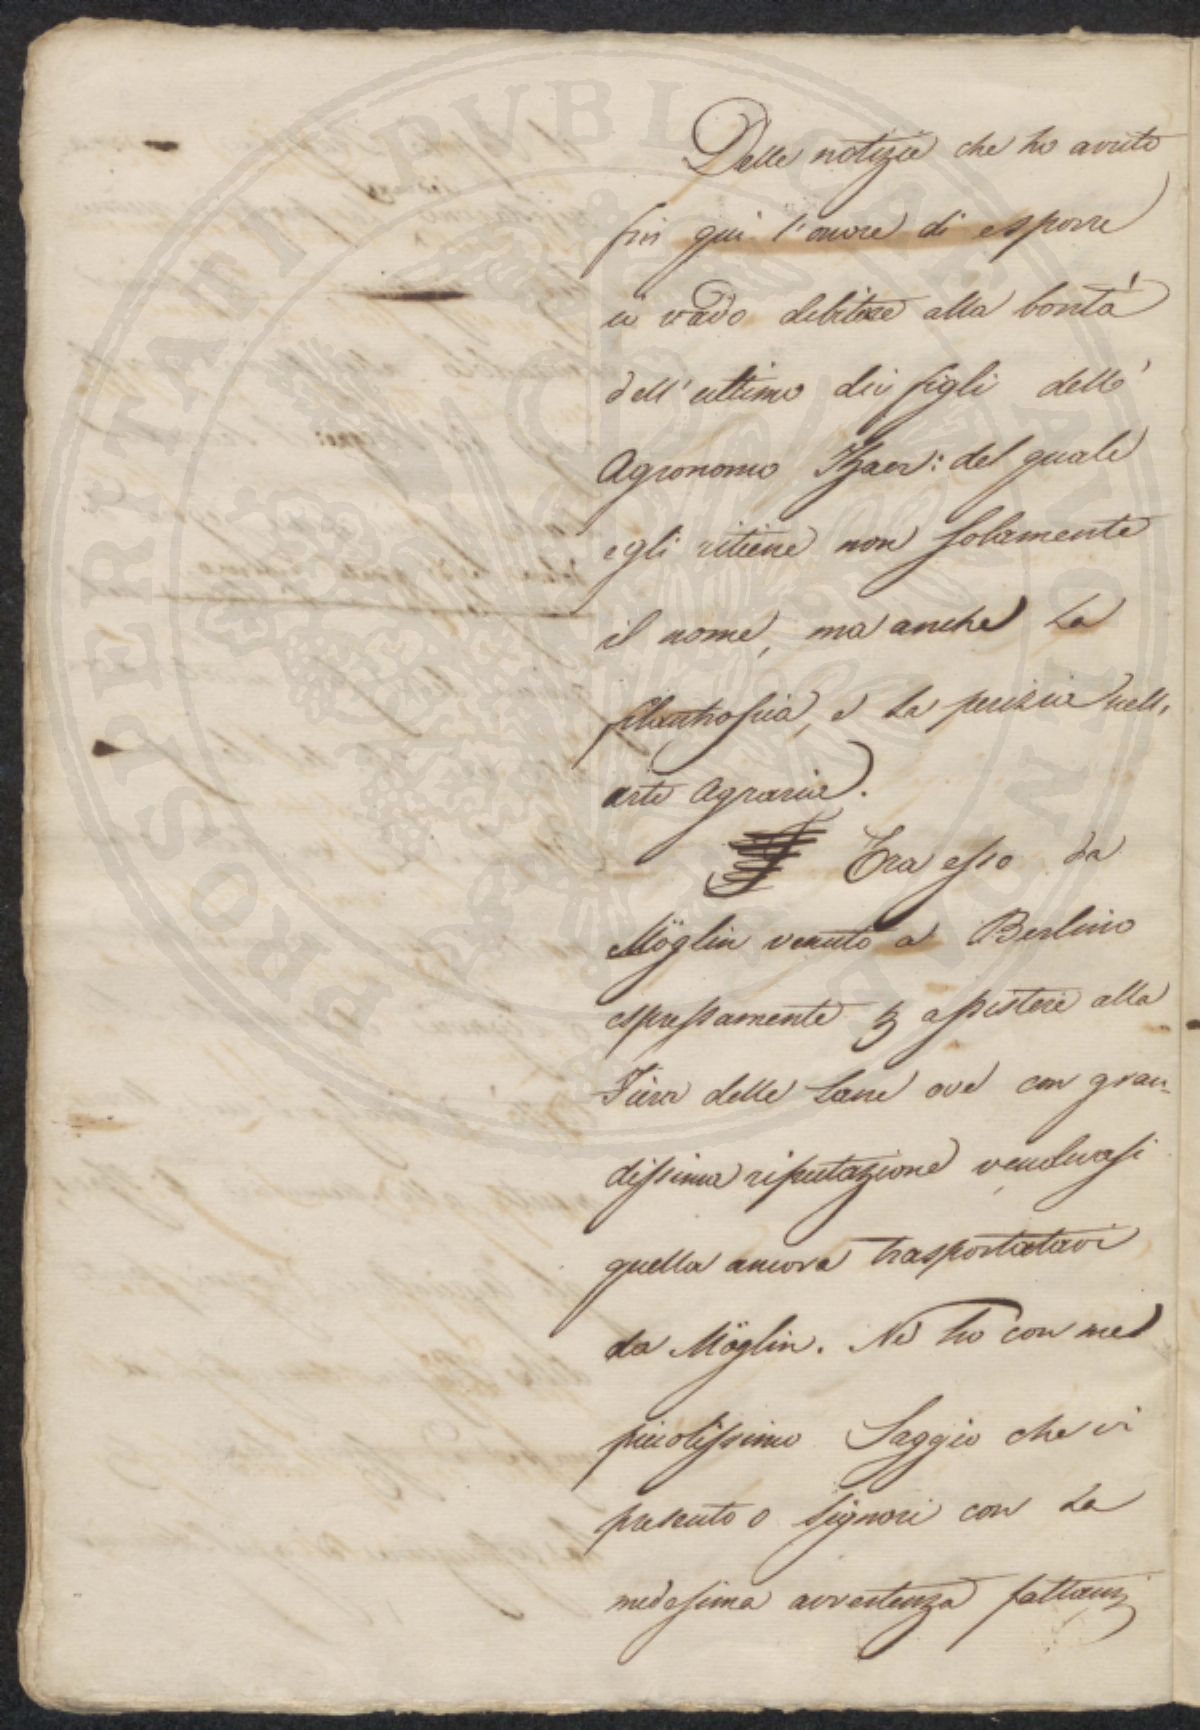 Delle notizie che ho avuto
fin qui l'onore di esporre
io vado debitore alla bontà
dell'ultimo dei figli dell'
Agronomo Thaer: del quale
egli ritiene non solamente
il nome, ma anche la
filantropia, e la perizia nell'
arte Agraria.
Era esso da
Möglin venuto a Berlino
espressamente p assistere alla
Fiera delle Lane ove con gran-
dissima riputazione vendevasi
quella ancora trasportatavi
da Möglin. Ne ho con me
piccolissimo Saggio che vi
presento o Signori con la
medesima avvertenza fattami
PROSPERITATI PUBLICAE AUGENDAE